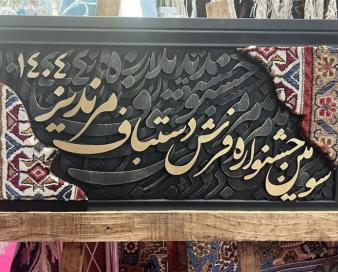 سومین جشنواره فرش دستباف مرندیز ۱۴۰۴